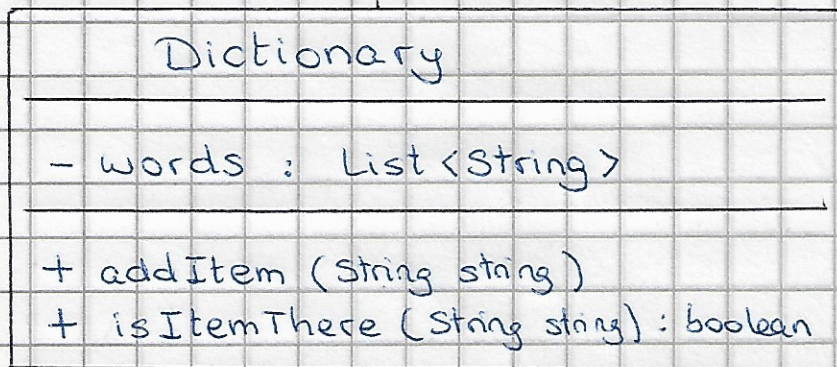 Dictionary
- words : List <String>
+ addItem (String string)
+ isItemThere (String string) : boolean